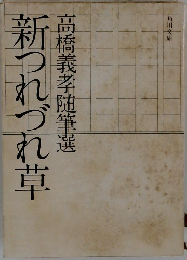 角川文庫
高橋義孝随筆選
新つれづれ草